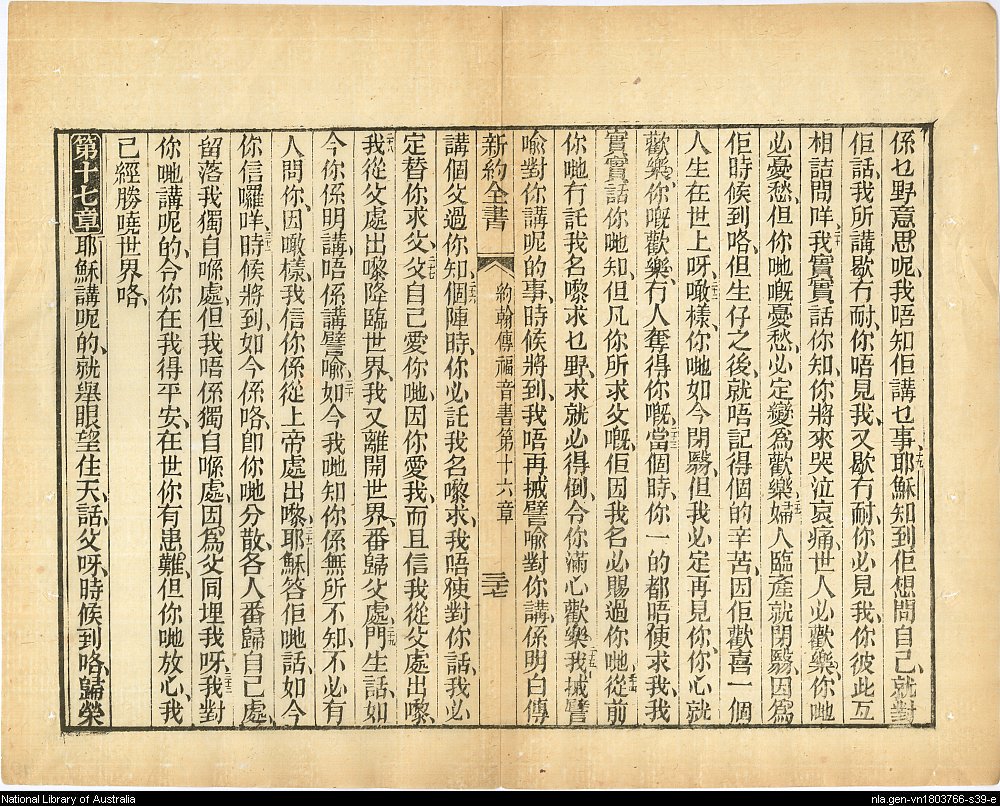 係乜野意思呢、我唔知佢講乜事、十九耶穌知到佢想問自己、就對
佢話、我所講歇冇耐、你唔見我、又歇冇耐、你必見我、你彼此互
相詰問咩、二十我實實話你知、你將來哭泣哀痛、世人必歡樂、你哋
必憂愁、但你哋嘅憂愁、必定變爲歡樂、婦人臨產就閉翳、因爲
佢時候到咯、但生仔之後、就唔記得個的辛苦、因佢歡喜一個
人生在世上呀、二十二噉樣、你哋如今閉翳、但我必定再見你、你心就
歡樂、你嘅歡樂、冇人奪得你嘅、二十三當個時、你一的都唔使求我、我
實實話你哋知、但凡你所求父嘅、佢因我名必賜過你哋、二十四從前
你哋冇託我名嚟求乜野、求就必得倒、令你滿心歡樂、二十五我搣譬
喻對你講呢的事、時候將到、我唔再搣譬喻對你講、係明白傳
新約全書 約翰傳福音書第十六章 三十七
講個父過你知、二十六個陣時、你必託我名嚟求、我唔使對你話、我必
定替你求父、二十七父自己愛你哋、因你愛我、而且信我從父處出嚟、
二十八我從父處出嚟、降臨世界、我又離開世界、番歸父處、二十九門生話、如
今你係明講、唔係講譬喻、三十如今我哋知你係無所不知、不必有
人問你、因噉樣、我信你係從上帝處出嚟、三十一耶穌答佢哋話、如今
你信囉咩、三十二時候將到、如今係咯、卽你哋分散、各人番歸自己處、
留落我獨自喺處、但我唔係獨自喺處、因爲父同埋我呀、三十三我對
你哋講呢的、令你在我得平安、在世你有患難、但你哋放心、我
已經勝曉世界咯、
第十七章 耶穌講呢的、就舉眼望住天、話、父呀、時候到咯、歸榮